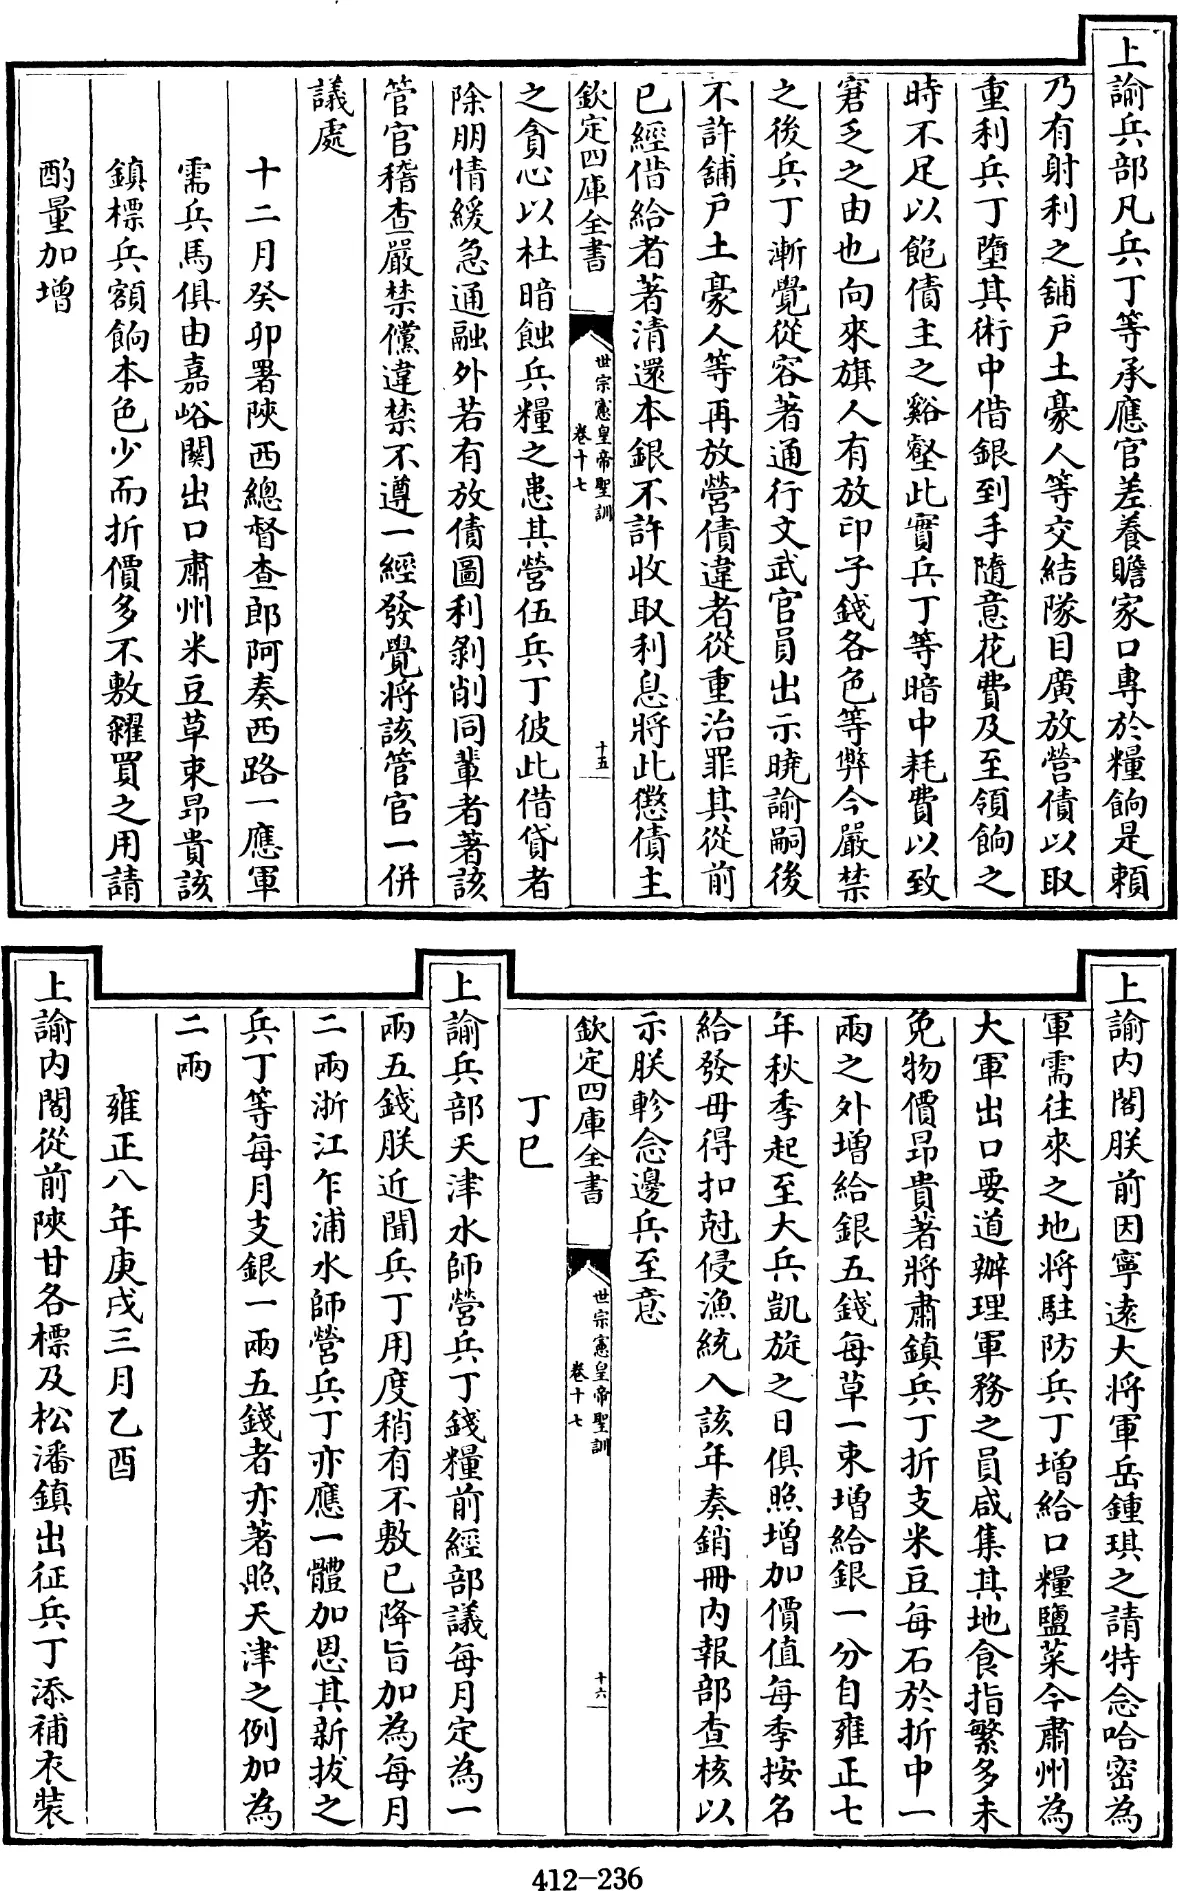 上諭兵部凡兵丁等承應官差養贍家口專於糧餉是賴
乃有射利之舖戶土豪人等交結隊目廣放營債以取
重利兵丁墮其術中借銀到手隨意花費及至領餉之
時不足以飽債主之谿壑此實兵丁等暗中耗費以致
窘乏之由也向來旗人有放印子錢各色等弊今嚴禁
之後兵丁漸覺從容著通行文武官員出示曉諭嗣後
不許舖戶土豪人等再放營債違者從重治罪其從前
已經借給者著清還本銀不許收取利息將此懲債主
欽定四庫全書
世宗憲皇帝聖訓
卷十七
十五
之貪心以杜暗蝕兵糧之患其營伍兵丁彼此借貸者
除朋情緩急通融外若有放債圖利剝削同輩者著該
管官稽查嚴禁儻違禁不遵一經發覺將該管官一併
議處
十二月癸卯署陝西總督查郎阿奏西路一應軍
需兵馬俱由嘉峪關出口肅州米豆草束昂貴該
鎮標兵額餉本色少而折價多不敷糴買之用請
酌量加增
上諭内閣朕前因寧遠大將軍岳鍾琪之請特念哈密為
軍需往來之地將駐防兵丁增給口糧鹽菜今肅州為
大軍出口要道辦理軍務之員咸集其地食指繁多未
免物價昂貴著將肅鎮兵丁折支米豆每石於折中一
兩之外增給銀五錢每草一束增給銀一分自雍正七
年秋季起至大兵凱旋之日俱照增加價值每季按名
給發毋得扣尅侵漁統入該年奏銷冊内報部查核以
示朕軫念邊兵至意
欽定四庫全書
世宗憲皇帝聖訓
卷十七
十六
丁巳
上諭兵部天津水師營兵丁錢糧前經部議每月定為一
兩五錢朕近聞兵丁用度稍有不敷已降旨加為每月
二兩浙江乍浦水師營兵丁亦應一體加恩其新拔之
兵丁等每月支銀一兩五錢者亦著照天津之例加為
二兩
雍正八年庚戌三月乙酉
上諭内閣從前陝甘各標及松潘鎮出征兵丁添補衣裝
412-236